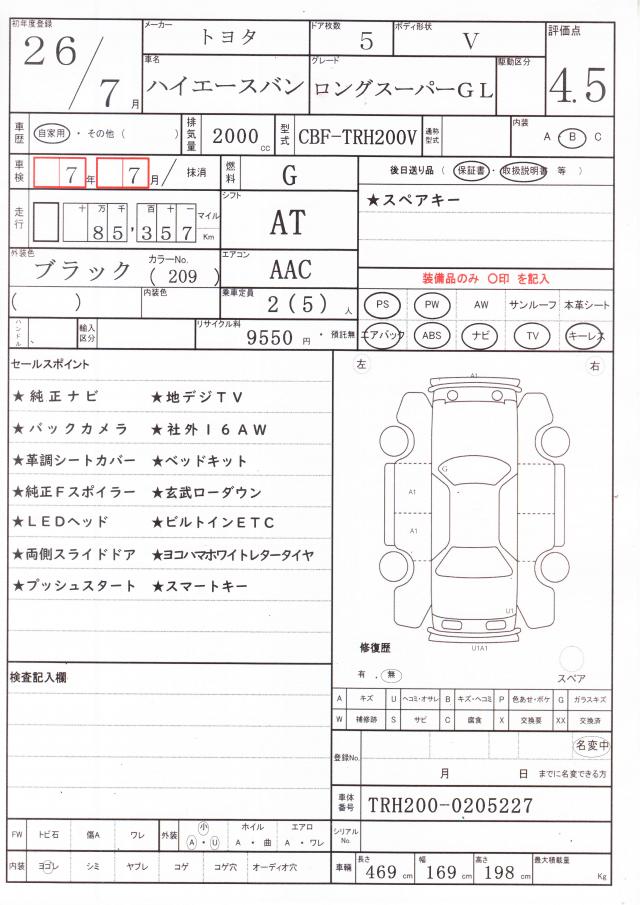 初年度登録 26/7月 メーカー トヨタ ドア枚数 5 ボディ形状 V 評価点 4.5
車名 ハイエースバン グレード ロングスーパーGL 駆動区分
車歴 自家用 ・ その他 ( ) 排気量 2000 cc 型式 CBF-TRH200V 通称型式 内装 A B C
車検 7年 7月 / 抹消 燃料 G 後日送り品 ( 保証書 ・ 取扱説明書 等 )
走行 十万千百十一 85,357 マイル Km シフト AT ★スペアキー
外装色 ブラック カラーNo. ( 209 ) エアコン AAC 装備品のみ 〇印 を記入
( ) 内装色 乗車定員 2(5) 人 PS PW AW サンルーフ 本革シート
ハンドル 、 輸入区分 リサイクル料 9550 円 ・ 預託無 エアバック ABS ナビ TV キーレス
セールスポイント 左 右
★純正ナビ ★地デジTV
★バックカメラ ★社外16AW
★革調シートカバー ★ベッドキット
★純正Fスポイラー ★玄武ローダウン
★LEDヘッド ★ビルトインETC
★両側スライドドア ★ヨコハマホワイトレタータイヤ
★プッシュスタート ★スマートキー
A1
G
A1
A1
U1
U1A1
修復歴
有 . 無 スペア
検査記入欄
A キズ U ヘコミ・オサレ B キズ・ヘコミ P 色あせ・ボケ G ガラスキズ
W 補修跡 S サビ C 腐食 X 交換要 XX 交換済
登録No. 名変中
月 日 までに名変できる方
車体番号 TRH200-0205227
FW トビ石 傷A ワレ 外装 小 A ・ U ホイル A ・ 曲 エアロ A ・ ワレ シリアルNo.
内装 ヨゴレ シミ ヤブレ コゲ コゲ穴 オーディオ穴 車輌 長さ 469 cm 幅 169 cm 高さ 198 cm 最大積載量 Kg